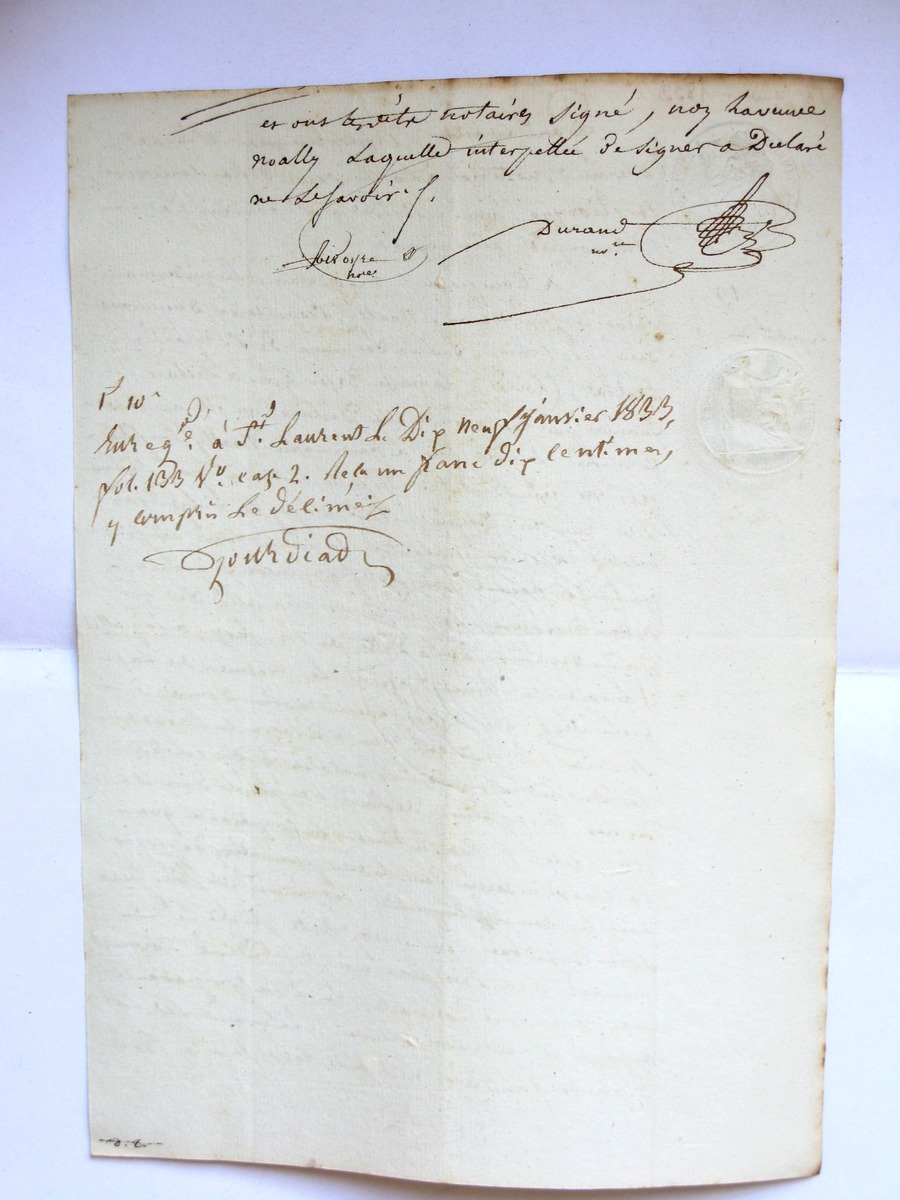 et ont lesdits notaires signé, non la veuve
noally Laquelle interpellée de signer a Déclaré
ne Le Savoir ./.
Durand
nre
nre
1f 10c
Enregé. à St. Laurent Le Dix neuf janvier 1833,
fol. 133 Vo. case 2. Reçu un franc dix centimes,
y compris Le décime